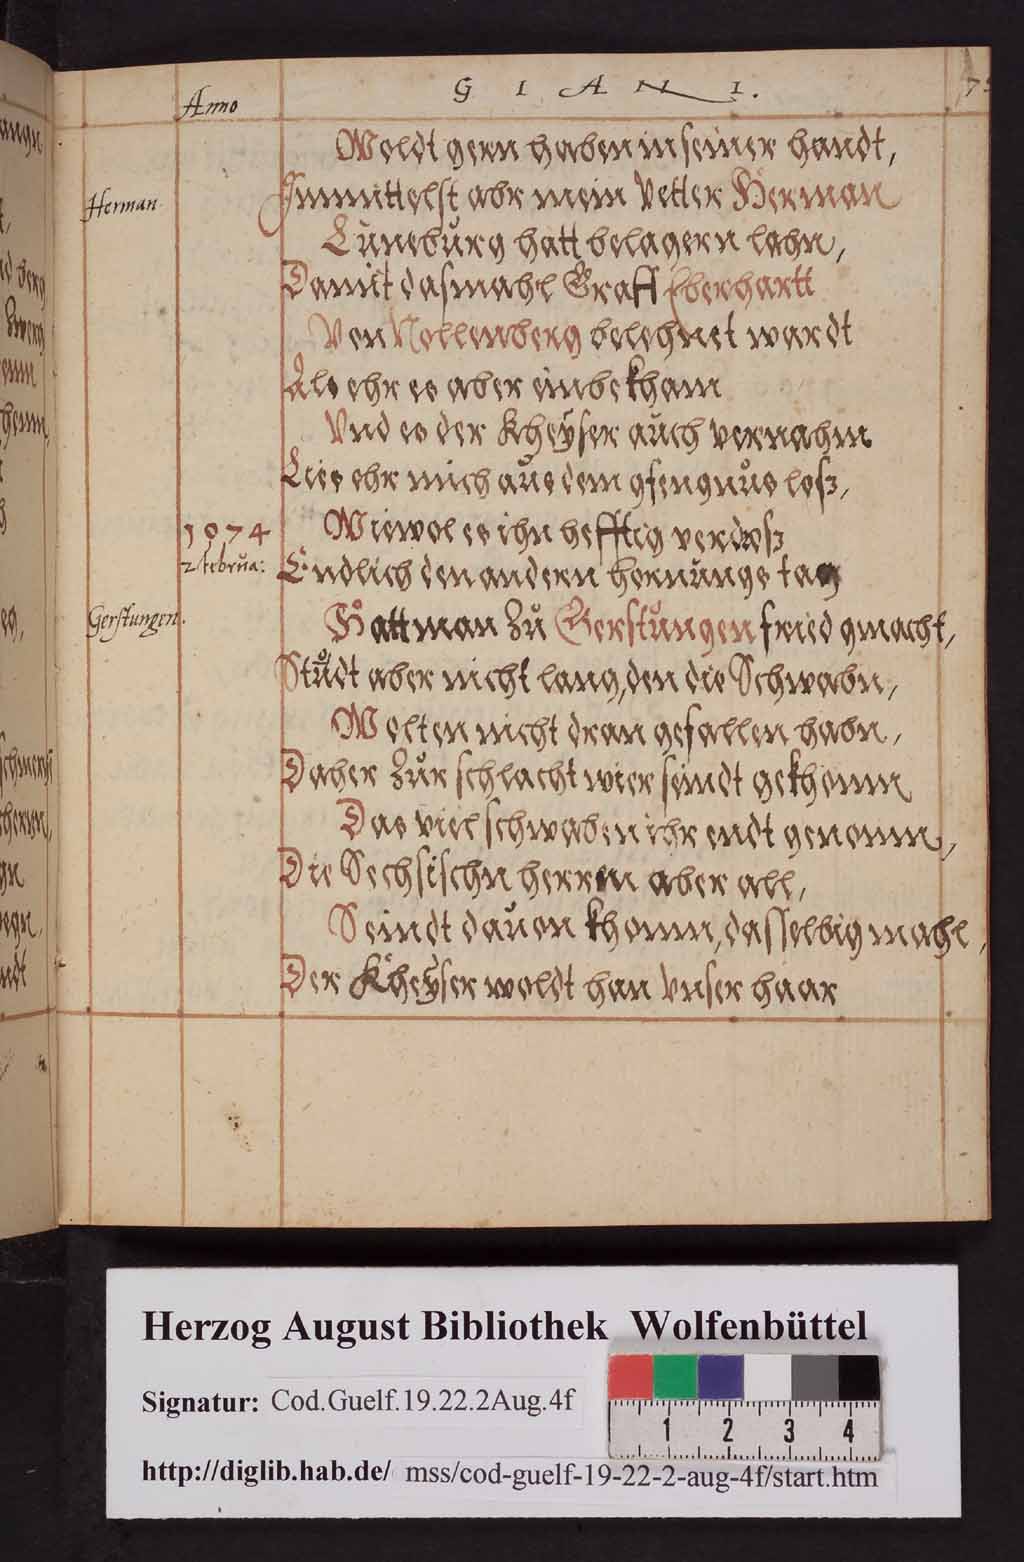 Anno
GIANI.
Woldt gern haben in seiner handt,
Herman
Inmittelst abr mein Vetter Herman
Lüneburg hatt belagern lahn,
Damit dasmahl Graff Eberhartt
Von Nellenberg belehnet wardt
Als ehr es aber einbekham
Vnd es der Kheÿser auch vernahm
Lies ehr mich aus dem gfengnus loß,
1074
Wiewol es ihn hefftig verdroß
2 februa:
Endlich den andern hornungs tag
Gerstungen.
Hatt man zu Gerstungen fried gmacht,
Stůdt aber nicht lang, den die Schwabn,
Wolten nicht dran gefallen habn,
Daher zur schlacht wier seindt gekhomn
Das viel schwaben ihr endt genomn,
Die Sechsischn herren aber all,
Seindt dauon khomn, dasselbig mahl,
Der Kheÿser woldt han Vnser haar
Herzog August Bibliothek Wolfenbüttel
Signatur: Cod.Guelf.19.22.2Aug.4f
1 2 3 4
http://diglib.hab.de/ mss/cod-guelf-19-22-2-aug-4f/start.htm